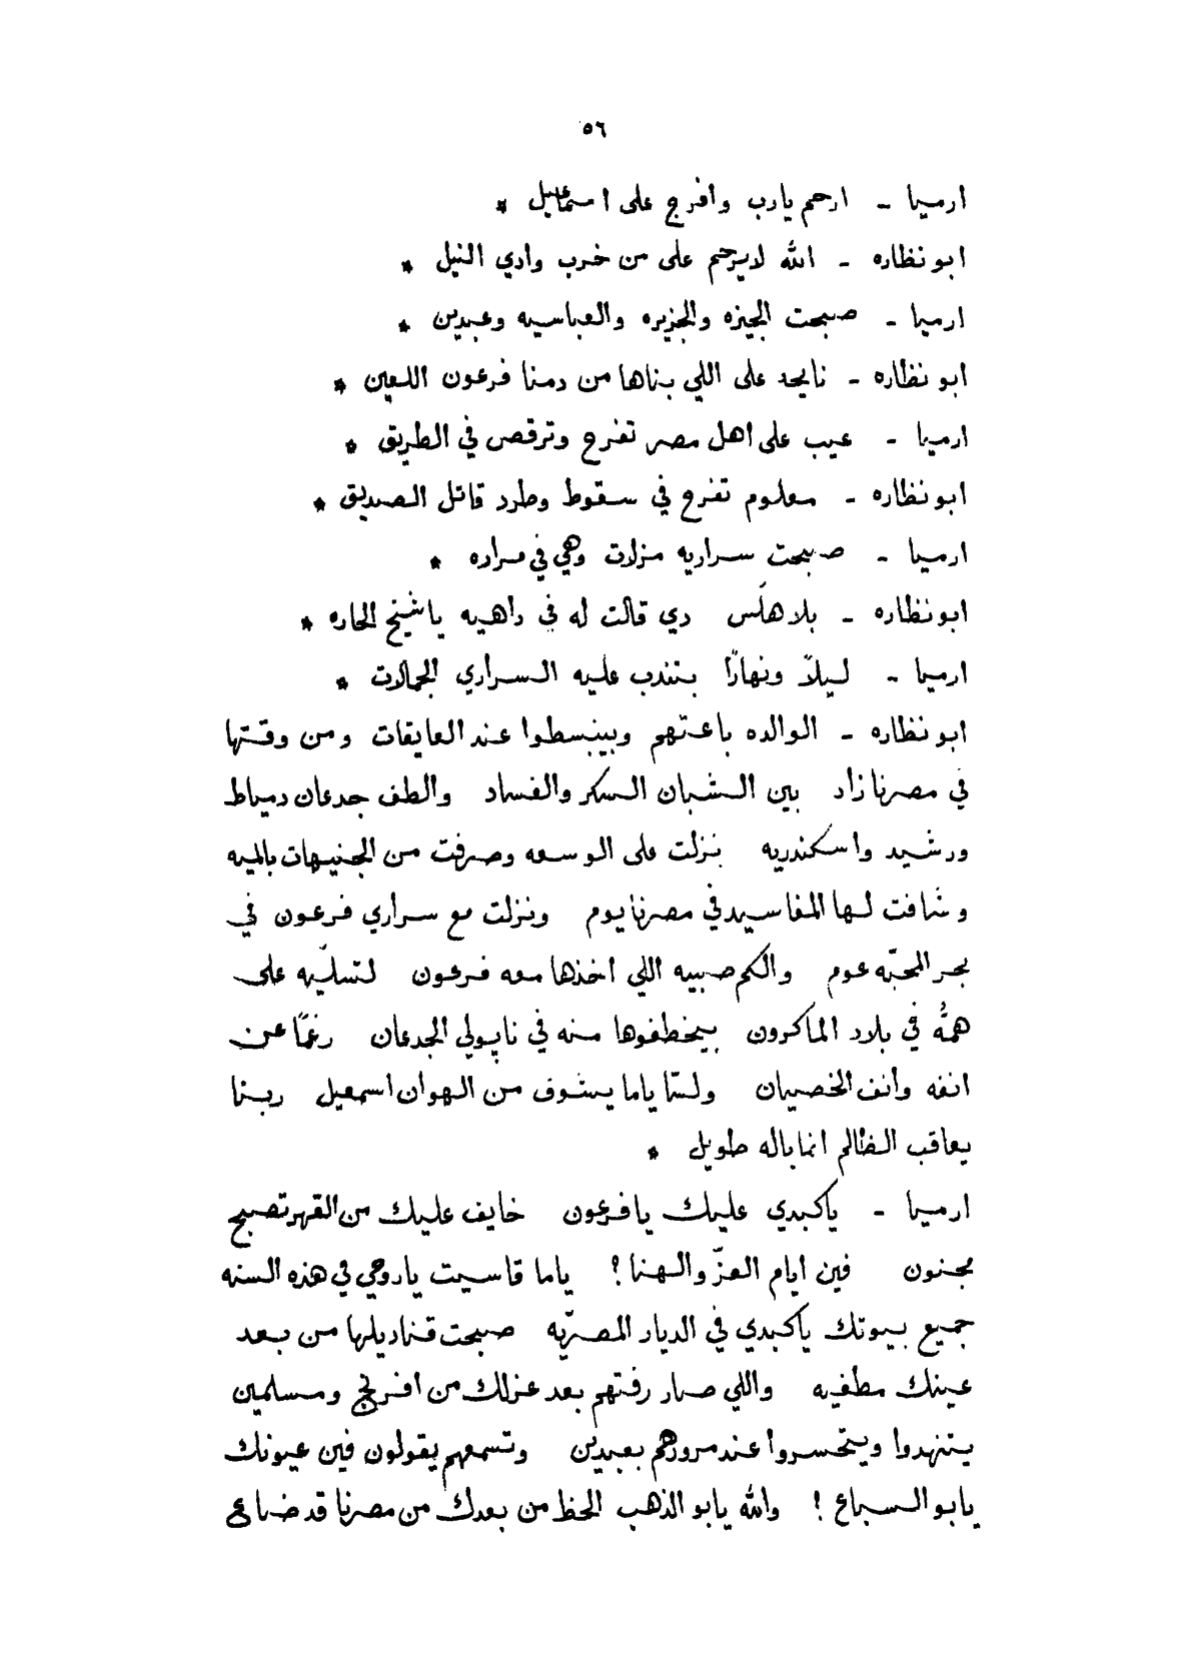 ٥٦
ارميا ـ ارحم يارب وافرج على اسماعيل *
ابو نظاره ـ الله لايرحم على من خرب وادي النيل *
ارميا ـ صبحت الجيزه والجزيره والعباسيه وعبدين *
ابو نظاره ـ نايحد على اللي بناها من دمنا فرعون اللعين *
ارميا ـ عيب على اهل مصر تفرح وترقص في الطريق *
ابو نظاره ـ معلوم تفرح في سقوط وطرد قاتل الصديق *
ارميا ـ صبحت سراريه مزلات وهي في مراره *
ابو نظاره ـ بلا هلَس دي قالت له في داهيه ياشيخ الحاره *
ارميا ـ ليلاً ونهارًا بتندب عليه السراري الجمالات *
ابو نظاره ـ الوالده باعتهم وبيبنسطوا عند العايقات ومن وقتها
في مصرنا زاد بين الشبان السكر والفساد والطف جدعان دمياط
ورشيد واسكندريه نزلت على الوسعه وصرفت من الجنيهات بالميه
وشافت لها المفاسيد في مصرنا يوم ونزلت مع سراري فرعون في
بحر المحبّه عوم والكم صبيه اللي اخذها معه فرعون لتسليه على
همُّه في بلاد الماكرون بيخطفوها منه في ناپولي الجدعان رغمًا عن
انفه وانف الخصيان ولسّا ياما يشوف من الهوان اسمعيل ربنا
يعاقب الظالم انما باله طويل *
ارميا ـ ياكبدي عليك يا فرعون خايف عليك من القهر تصبح
مجنون فين ايام العزّ والهنا؟ ياما قاسيت ياروحي في هذه السنه
جميع بيوتك ياكبدي في الديار المصريّه صبحت قناديلها من بعد
عينك مطفيه واللي صار رفتهم بعد عزلك من افرنج ومسلمين
يتنهدوا ويتحسروا عند مرورهم بعبدين وتسمعهم يقولون فين عيونك
يابو السباع! والله يابو الذهب الحظ من بعدك من مصرنا قد ضاع